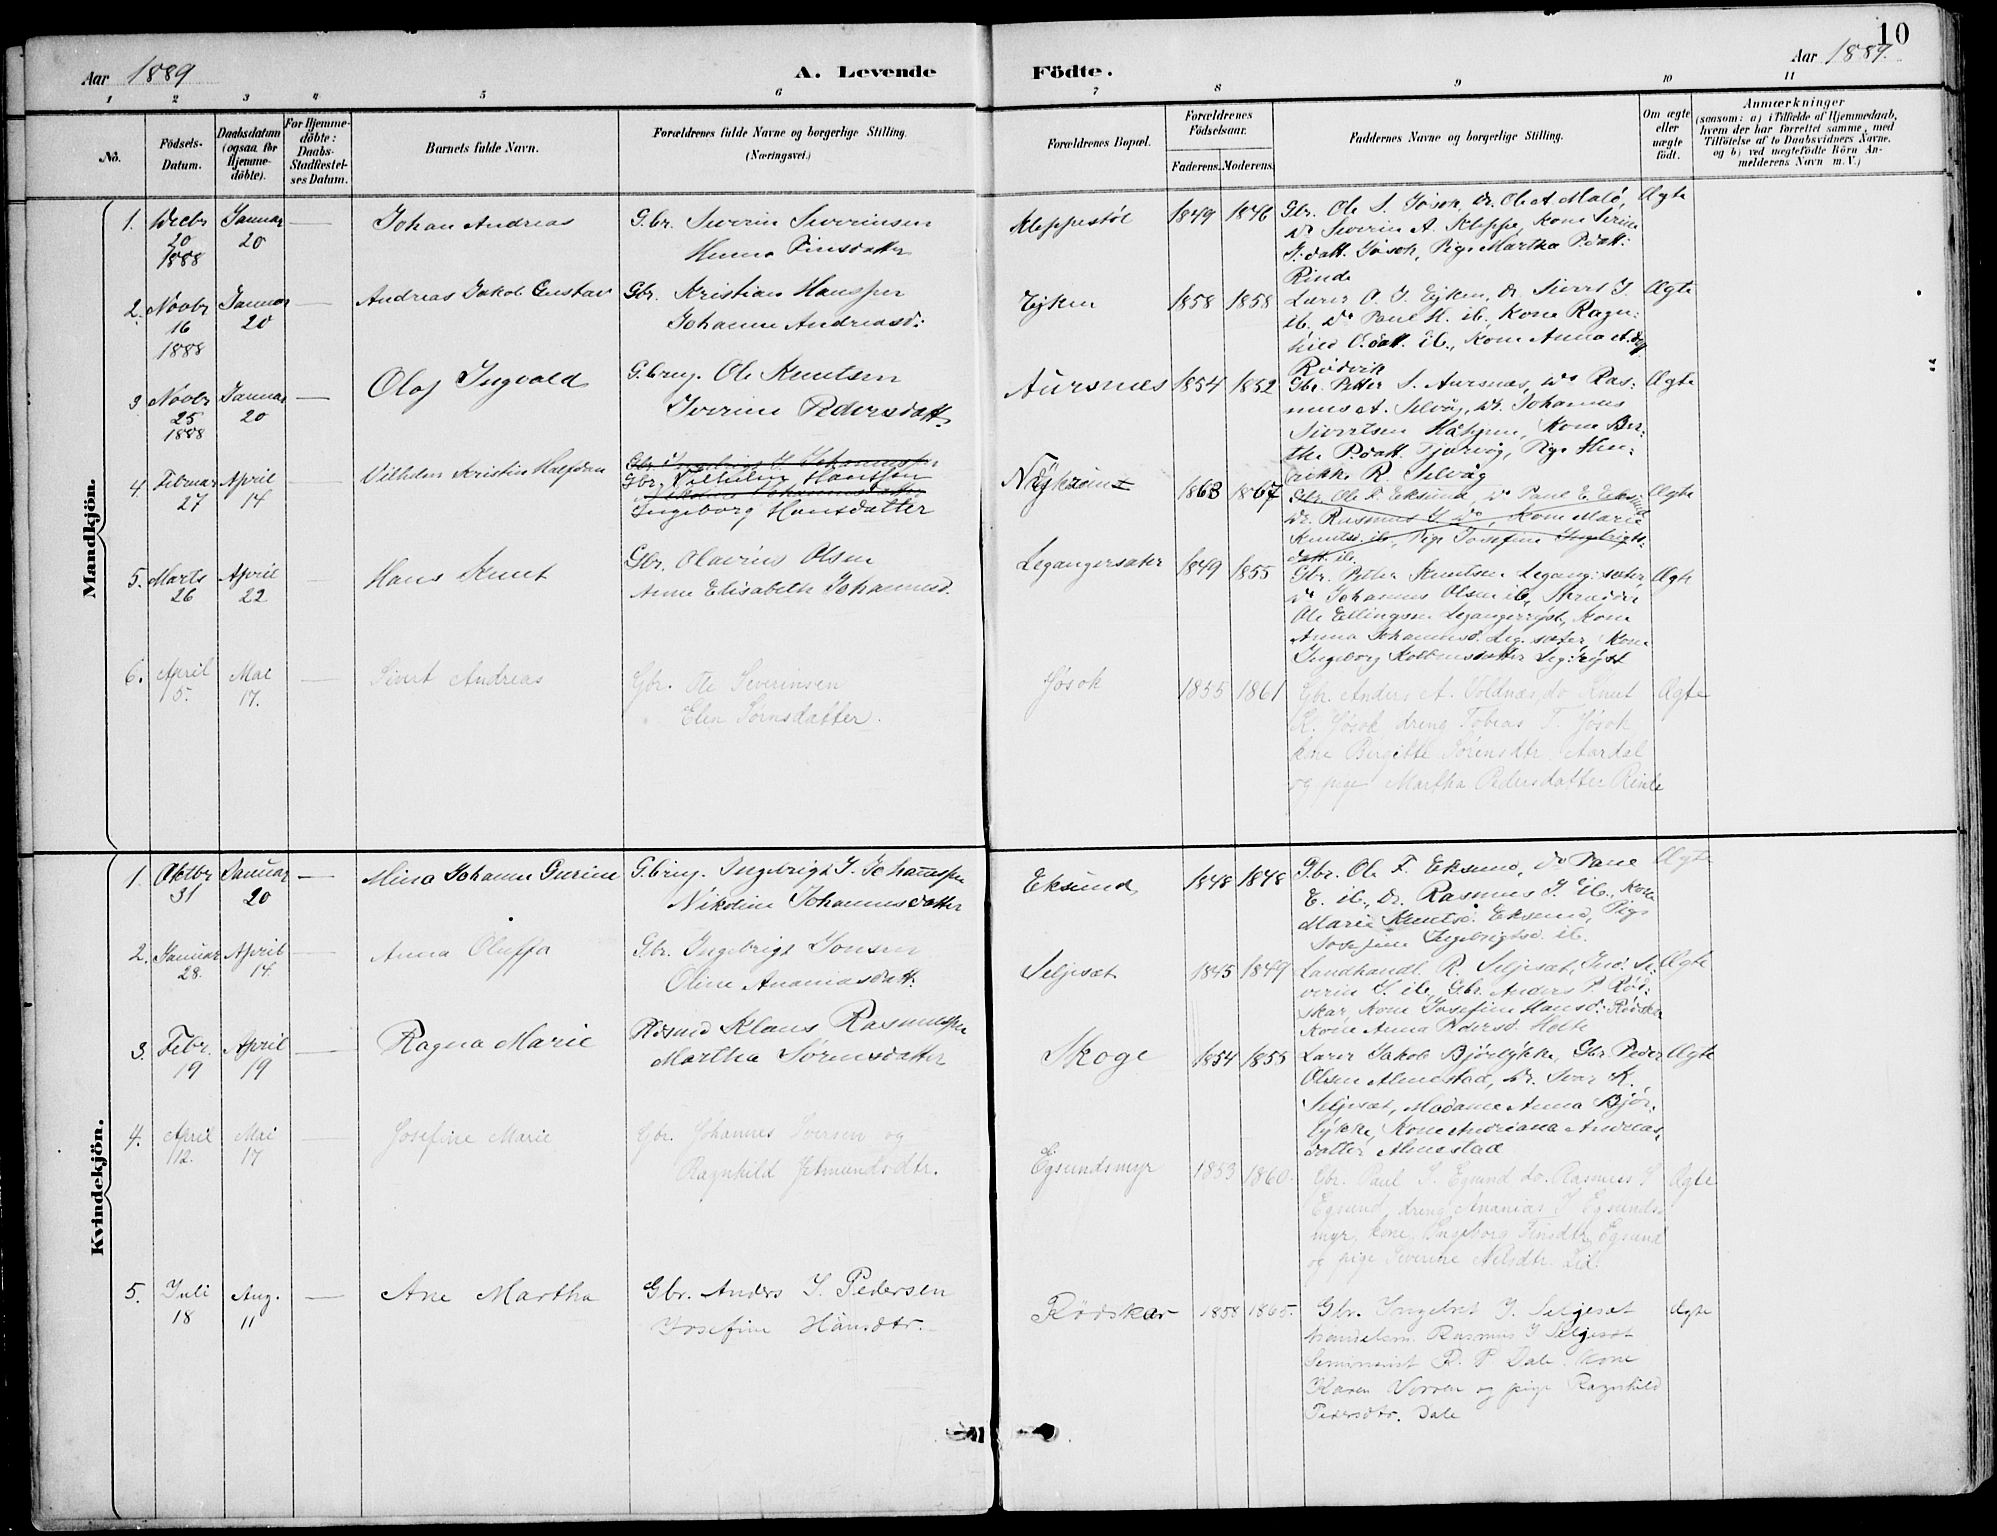 10
Aar 1889
A. Levende
Födte.
Aar 1889.
1 2 3 4 5 6 7 8 9 10 11
No.
Födsels-
Datum.
Daabsdatum
(ogsaa for
Hjemme-
döbte).
For Hjemme-
döbte:
Daabs-
Stadfæstel-
ses Datum.
Barnets fulde Navn.
Forældrenes fulde Navne og borgerlige Stilling.
(Næringsvei.)
Forældrenes Bopæl.
Forældrenes
Födselsaar.
Faderens. Moderens.
Faddernes Navne og borgerlige Stilling.
Om ægte
eller
uægte
født.
Anmærkninger
(saasom: a) i Tilfælde af Hjemmedaab,
hvem der har forrettet samme, med
Tilföielse af to Daabsvidners Navne.
og b) ved uægtefödte Börn An-
melderens Navn m. V.)
Mandkjön.
1. Decbr 20 1888
Januar 20
Johan Andreas
Gbr. Severin Severinsen
Finsdatter
Kleppestöl
1849 1846
Gbr. Ole S. Jøsok, Do. Ole A.
Do Severin A. Kleppe, Kone Serine
Jøsok, Pige Martha Pdatt:
Rinde
Ægte
2. Novbr 16 1888
Januar 20
Andreas Jakob Gustav
Gbr. Kristian Hanssen
Johanne Andreasd:
Ejken
1858 1858
Lærer O. J. Ejken, Do Sivert J.
ib, Do Paul H. ib, Kone Ragn:
hild Odatt. ib., Kone Anna
Rødvik
Ægte
3 Novbr 25 1888
Januar 20
Olaf Ingvald
Gbrug. Ole Knutsen
Iverine Pedersdatt.
Aursnes
1854 1852
Gbr. Petter S. Aursnæs, Do Ras:
mus A. Selvåg, Do. Johannes
Sivertsen Håhjem, Kone Ber:
the Pdatt. Tjørvåg, Pige Hen:
rikke R. Selvåg
Ægte
4. Februar 27
April 14
Vilhelm Kristin Halfdan
Gbr. Ingebrigt J. Johannssen
Gbr. Vilhelm Hansssen
Nikoline Johannesdatter
Ingeborg Hansdatter
1863 1867
Gbr. Ole F. Eksund, Do Paul E. Eksund
Do. Rasmus J. Do, Kone Marie
Knutsd. ib., Pige Josefine Ingebrigts:
datt. ib.
Ægte
5. Marts 26
April 22
Hans Knut
Gbr. Olavius Olsen
Anne Elisabeth Johannesd.
Legangersæter
1849 1855
Gbr. Petter Knutsen Legang: sæter,
Do Johannes Olsen ib, Skrædder
Ole Ellingsen Legangerrøst, Kone
Anna Johannesd. Leg. sæter, Kone
Ingeborg Kolbensdatter Leg: røyst
Ægte
6. April 5.
Mai 17.
Sivert Andreas
Gbr. Ole Severinsen
Elen Sørnsdatter.
Jøsok
1855 1861
Gbr. Anders A. Voldnæs, do Knut
K. Jøsok, dreng Tobias T. Jøsok
kone Bergitte Sørensdtr. Aardal
og pige Martha Pedersdatter Rinde
Ægte
Kvindekjön.
1. Oktbr 31
Januar 20
Mina Johanne Gurine
Gbrug. Ingebrigt J. Johannssen
Nikoline Johannesdatter
Eksund
1848 1848
Gbr. Ole F. Eksund, Do Paul
E. ib., Do. Rasmus J. ib., Kone
Marie Knutsd. Eksund, Pige
Josefine Ingebrigtsd. ib.
Ægte
2. Januar 28
April 14
Anna Oluffa
Gbr. Ingebrigt Jonsen
Oline Ananiasdatt.
Seljesæt
1845 1849
Landhandl. R. Seljesæt, Ind. Se:
verin S. ib, Gbr. Anders P. Rød:
skar, Kone Josefine Hansd: Rødskar
Kone Anna Pedersd.
Ægte
3. Febr. 19
April 19
Ragna Marie
Klaus Rasmussen
Martha Sørensdatter
Skoge
1854 1855
Lærer Jakob Bjørløkke, Gbr. Peder
Olsen Almestad, Do. Ivar K.
Seljesæt, Madame Anna Bjør:
løkke, Kone Andriana Andreas
datter Almestad
Ægte
4. April 12.
Mai 17
Josefine Marie
Gbr. Johannes Iversen og
Ragnhild Jetmundsdtr.
Egsundsmyr
1853 1860.
Gbr. Paul J. Egsund do. Rasmus J
Egsund, dreng Ananias J. Egsunds
myr, kone Ingeborg Finsdtr. Egsund
og pige Severine Nilsdtr. Lid.
Ægte
5. Juli 18
Aug. 11
Ane Martha
Gbr. Anders J. Pedersen
Josefine Hansdtr.
Rødskar
1858 1865.
Gbr. Ingebret J. Seljesæt
handelsm. Rasmus J Seljesæt
Seminarist R. P. Dale. kone
Karen Vorren og pige Ragnhild
Pedersdtr. Dale
Ægte